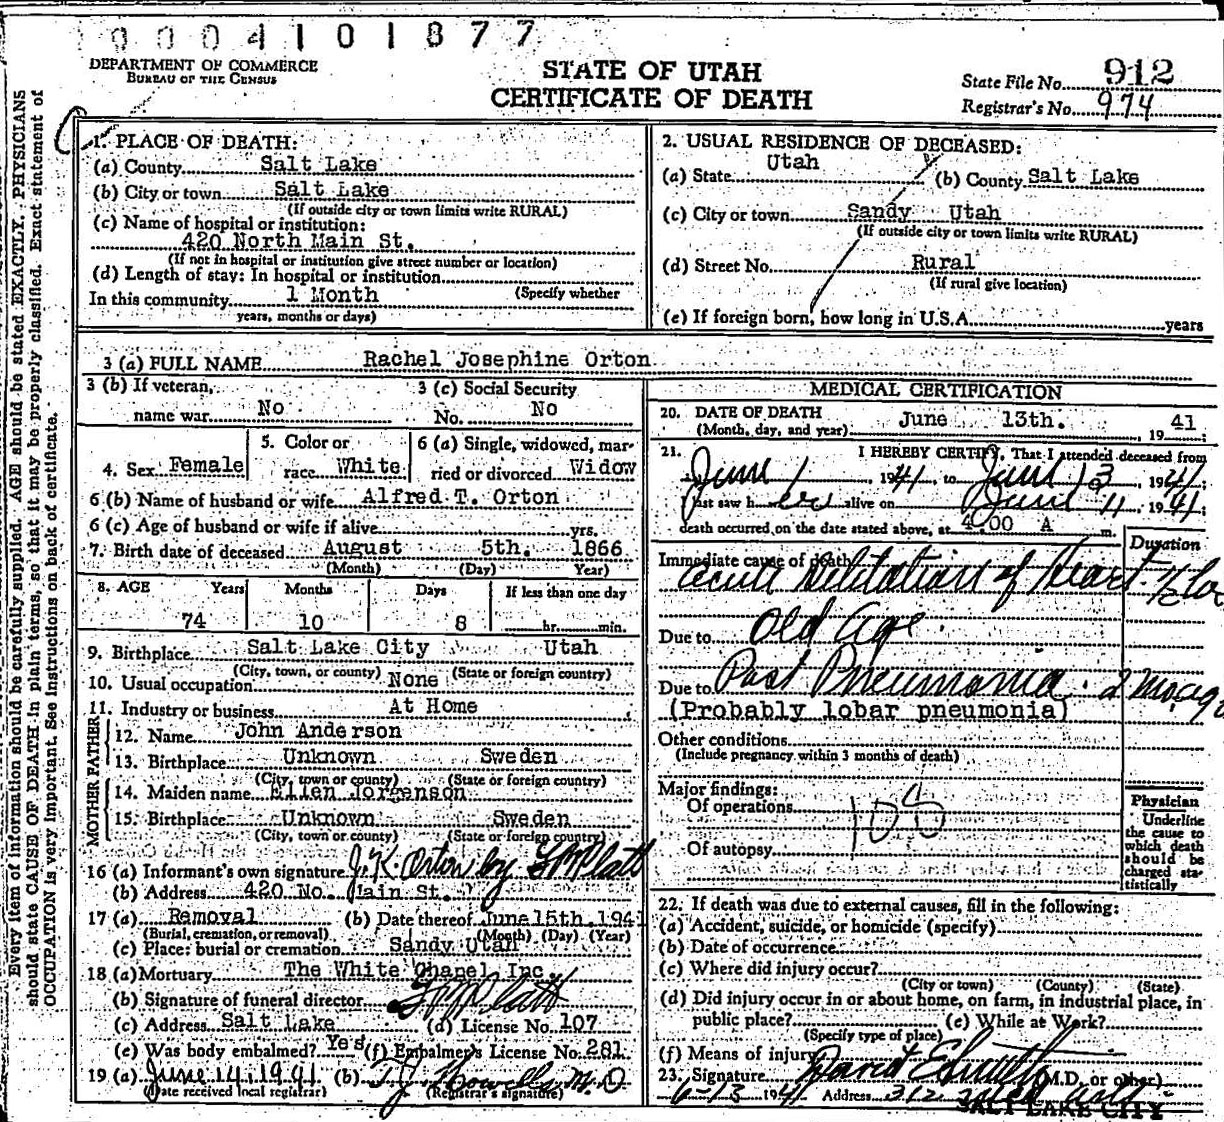 0004101877
DEPARTMENT OF COMMERCE
BUREAU OF THE CENSUS
STATE OF UTAH
CERTIFICATE OF DEATH
State File No. 912
Registrar's No. 974
Every item of information should be carefully supplied. AGE should be stated EXACTLY. PHYSICIANS
should state CAUSE OF DEATH in plain terms, so that it may be properly classified. Exact statement of
OCCUPATION is very important. See instructions on back of certificate.
1. PLACE OF DEATH:
(a) County Salt Lake
(b) City or town Salt Lake
(If outside city or town limits write RURAL)
(c) Name of hospital or institution:
420 North Main St.
(If not in hospital or institution give street number or location)
(d) Length of stay: In hospital or institution
In this community 1 Month (Specify whether
years, months or days)
2. USUAL RESIDENCE OF DECEASED:
(a) State Utah (b) County Salt Lake
(c) City or town Sandy Utah
(If outside city or town limits write RURAL)
(d) Street No. Rural
(If rural give location)
(e) If foreign born, how long in U.S.A. years
3 (a) FULL NAME Rachel Josephine Orton
3 (b) If veteran, name war No
3 (c) Social Security No. No
4. Sex Female
5. Color or race White
6 (a) Single, widowed, married or divorced Widow
6 (b) Name of husband or wife Alfred T. Orton
6 (c) Age of husband or wife if alive yrs.
7. Birth date of deceased August 5th. 1866
(Month) (Day) Year)
8. AGE Years Months Days If less than one day
74 10 8 hr. min.
9. Birthplace Salt Lake City Utah
(City, town, or county) (State or foreign country)
10. Usual occupation None
11. Industry or business At Home
FATHER
12. Name John Anderson
13. Birthplace Unknown Sweden
(City, town or county) (State or foreign country)
MOTHER
14. Maiden name Ellen Jorgenson
15. Birthplace Unknown Sweden
(City, town or county) (State or foreign country)
16 (a) Informant's own signature J. K. Orton by
(b) Address 420 No. Main St.
17 (a) Removal (b) Date thereof June 15th. 1941
(Burial, cremation, or removal) (Month) (Day) (Year)
(c) Place: burial or cremation Sandy Utah
18 (a) Mortuary The White Chapel Inc
(b) Signature of funeral director
(c) Address Salt Lake (d) License No. 107
(e) Was body embalmed? Yes (f) Embalmer's License No. 281
19 (a) June 14, 1941 (b) T. J. Howells M.D
(Date received local registrar) (Registrar's signature)
MEDICAL CERTIFICATION
20. DATE OF DEATH June 13th. 1941
(Month, day, and year)
21. I HEREBY CERTIFY, That I attended deceased from
June 1 1941 to June 13 1941;
I last saw her alive on June 11 1941;
death occurred on the date stated above, at 4.00 A m.
Duration
Immediate cause of death
Acute Dilitation of Heart
Due to Old age
Due to Past Pneumonia. 2 mo ago
(Probably lobar pneumonia)
Other conditions
(Include pregnancy within 3 months of death)
Major findings:
Of operations
108
Of autopsy
Physician
Underline
the cause to
which death
should be
charged sta-
tistically
22. If death was due to external causes, fill in the following:
(a) Accident, suicide, or homicide (specify)
(b) Date of occurrence
(c) Where did injury occur?
(City or town) (County) (State)
(d) Did injury occur in or about home, on farm, in industrial place, in
public place? (e) While at Work?
(Specify type of place)
(f) Means of injury
23. Signature David (M.D. or other)
6-13 1941 Address 312
SALT LAKE CITY